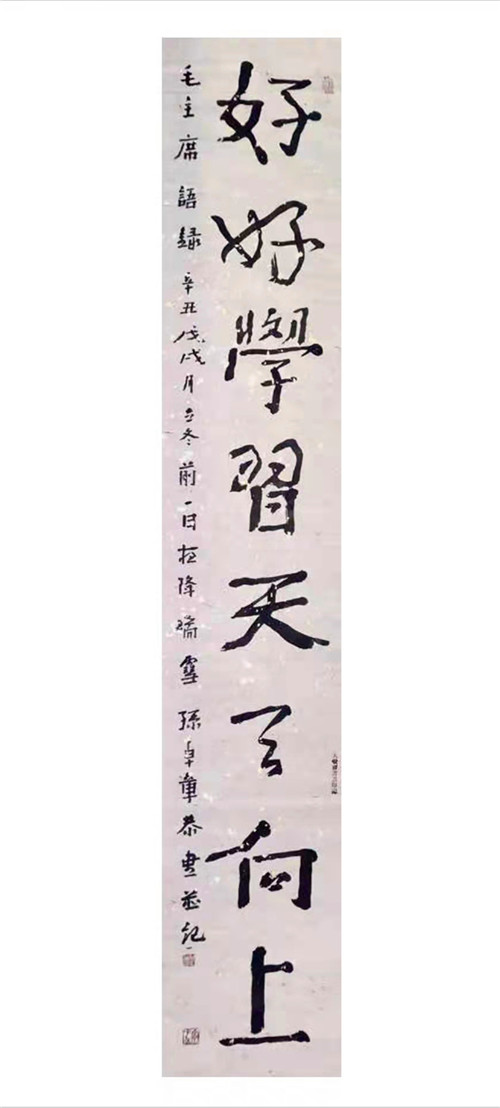 好好學習天天向上
毛主席語録 辛丑戊戌月立冬前一日降瑞雪 孫卓章恭書並記